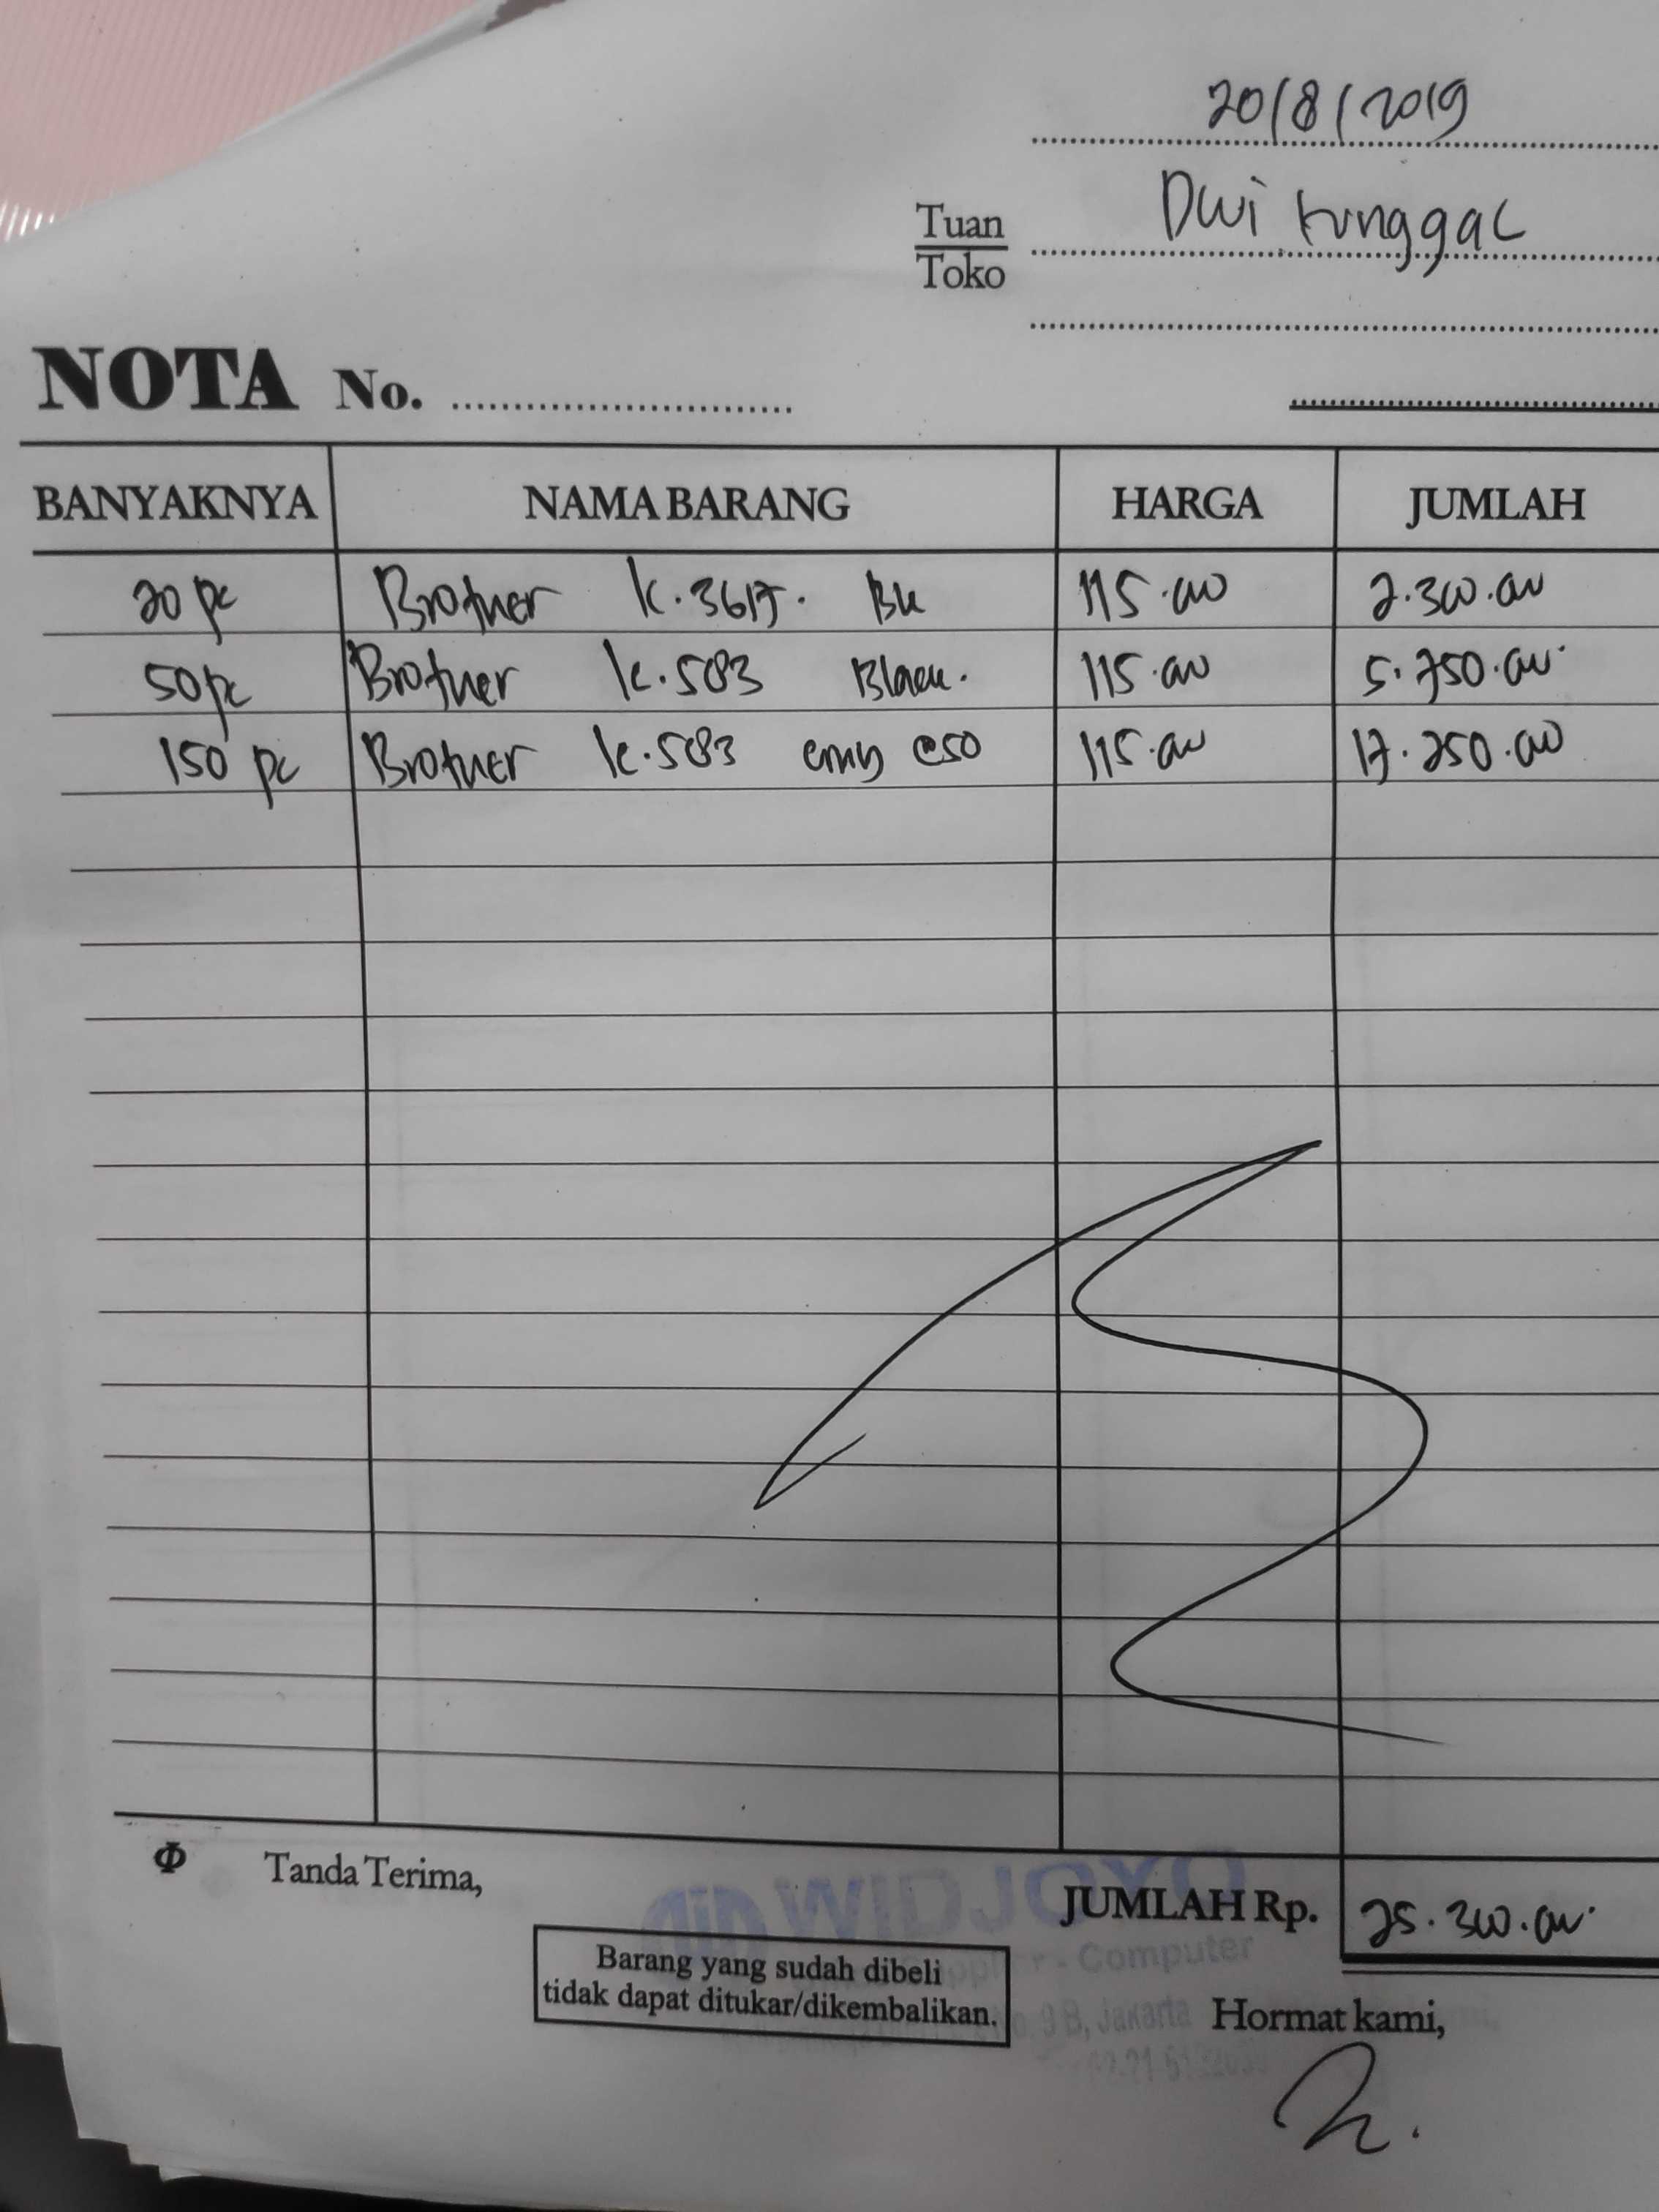 20/8/2019
Tuan
Toko
Dwi tunggal
NOTA No.
BANYAKNYA NAMA BARANG HARGA JUMLAH
20 pc Brother K.3617. Bk 115.000 2.300.000
50 pc Brother K.583 Black. 115.000 5.750.000
150 pc Brother K.583 cmy @50 115.000 17.250.000
Φ Tanda Terima,
WIDJOYO
JUMLAH Rp. 25.300.000
- Computer
Barang yang sudah dibeli
tidak dapat ditukar/dikembalikan.
9 B, Jakarta
Hormat kami,